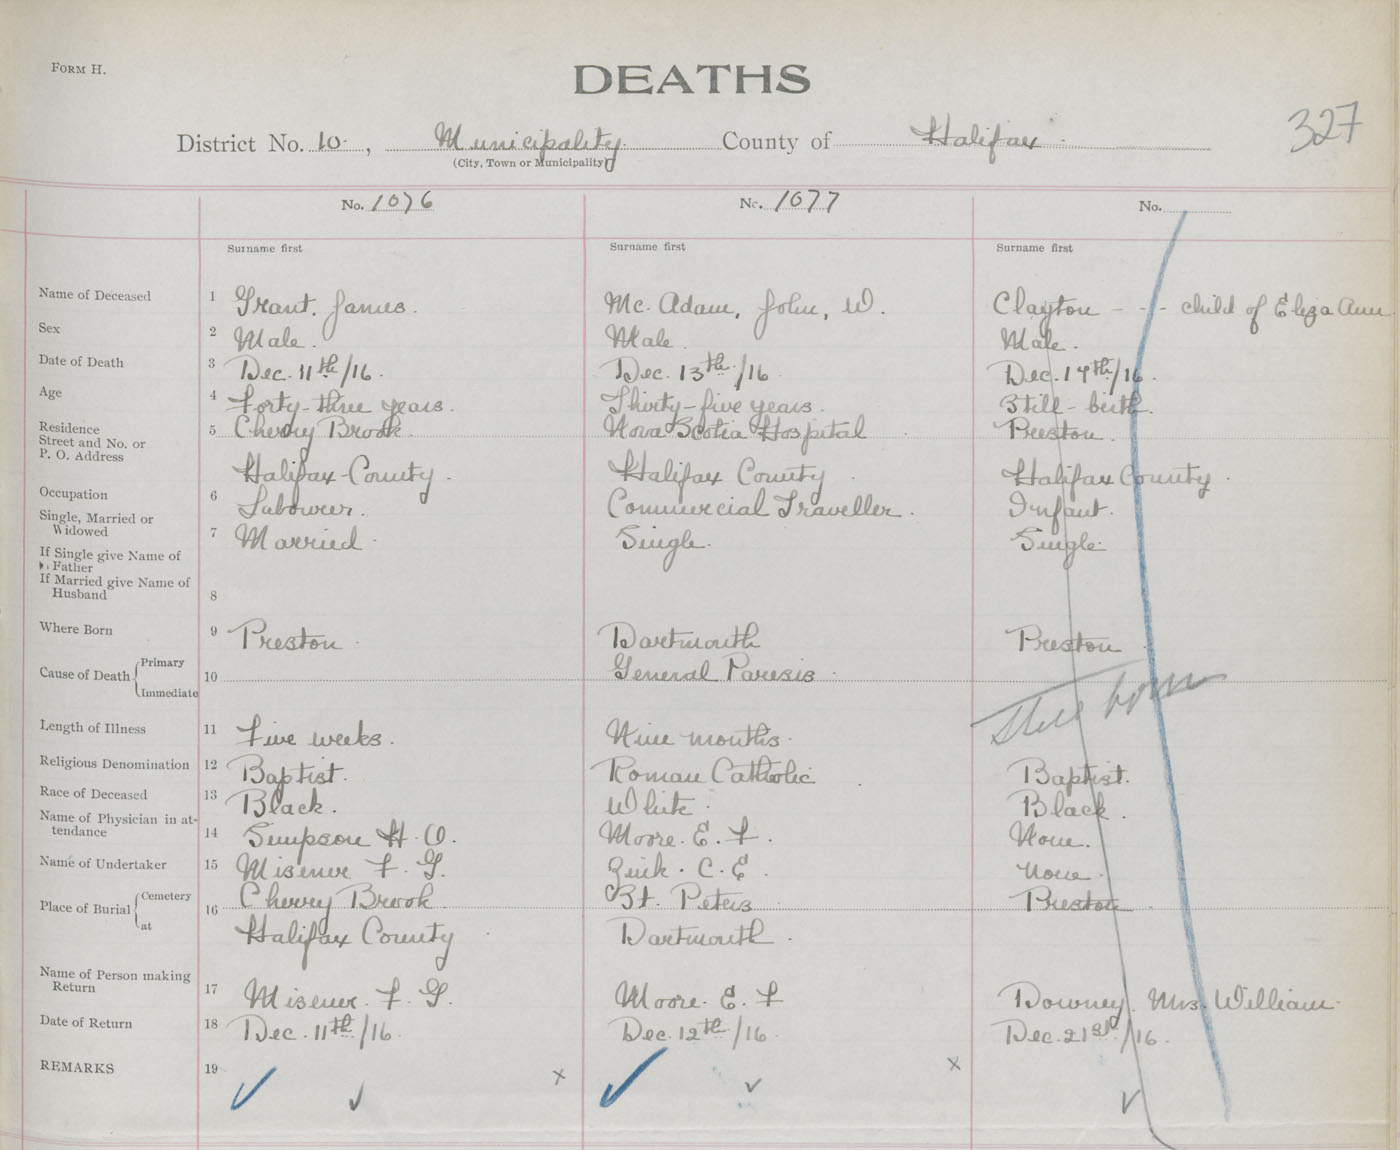 FORM H.
DEATHS
327
District No. 10. , Municipality. County of Halifax.
(City, Town or Municipality)
No. 1076 No. 1077 No.
Surname first Surname first Surname first
Name of Deceased 1 Grant. James. Mc. Adam, John, W. Clayton - - - child of Eliza Ann
Sex 2 Male. Male. Male.
Date of Death 3 Dec. 11th/16. Dec. 13th/16 Dec. 17th/16.
Age 4 Forty-three years. Thirty-five years. Still-birth.
Residence 5 Cherry Brook. Nova Scotia Hospital Preston.
Street and No. or
P. O. Address
Halifax-County. Halifax County. Halifax County.
Occupation 6 Labourer. Commercial Traveller. Infant.
Single, Married or
Widowed 7 Married. Single. Single.
If Single give Name of
Father
If Married give Name of
Husband 8
Where Born 9 Preston. Dartmouth Preston.
Cause of Death Primary General Paresis.
10
Immediate
Still born
Length of Illness 11 Five weeks. Nine months. 
Religious Denomination 12 Baptist. Roman Catholic. Baptist.
Race of Deceased 13 Black. White. Black.
Name of Physician in at-
tendance 14 Simpson H. O. Moore. E. F. None.
Name of Undertaker 15 Misener F. G. Zink. C. E. None.
Place of Burial Cemetery 16 Cherry Brook. St. Peters Preston
at Halifax County. Dartmouth.
Name of Person making
Return 17 Misener. F. G. Moore. E. F Downey, Mrs. William.
Date of Return 18 Dec. 11th/16. Dec. 12th/16. Dec. 21st/16.
REMARKS 19 x x